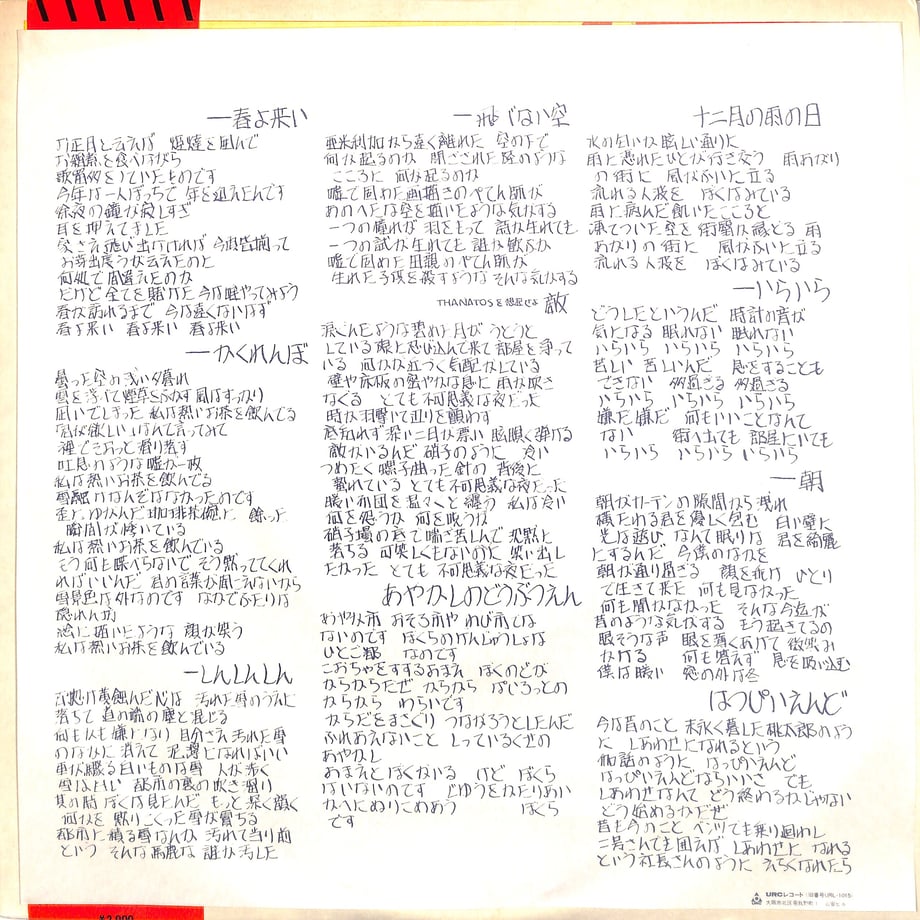 一春よ来い
お正月と云えば 炬燵を囲んで
お雑煮を食べながら
歌留多をしていたものです
今年は一人ぼっちで 年を迎えたんです
除夜の鐘が寂しすぎ
耳を押えてました
家さえ飛び出なければ 今頃皆揃って
お芽出度うが云えたのに
何処で間違えたのか
だけど全てを賭けた 今は唯やってみよう
春が訪れるまで 今は遠くないはず
春よ来い 春よ来い 春よ来い
一かくれんぼ
曇った空の浅い夕暮れ
雲を浮べて煙草をふかす 風はすっかり
凪いでしまった 私は熱いお茶を飲んでる
「君が欲しい」なんて言ってみて
裡でそおっと滑り落す
吐息のような嘘が一枚
私は熱いお茶を飲んでる
雪融けなんぞはなかったのです
歪にゆがんだ珈琲茶碗に 餘った
瞬間が悸いている
私は熱いお茶を飲んでいる
そう何も喋べらないで そう黙っててくれ
ればいいんだ 君の言葉が聞えないから
雪景色は外なのです なかでふたりは
隠れん坊
絵に描いたような 顔が笑う
私は熱いお茶を飲んでいる
一しんしんしん
古処は黄蝕んだ心は 汚れた雪のうえに
落ちて 道の端の塵と混じる
何もかも嫌になり 自分さえ汚れた雪
のなかに消えて 泥濘になればいい
車が轢る白いものは雪 人が歩く
雪は白い 都市の裏の吹き溜り
其の間 ぼくは見たんだ もっと深く韻く
何かを 黙りこくった雪が落ちる
都市に積る雪なんか 汚れて当り前
という そんな馬鹿な 誰が汚した
一飛べない空
亜米利加から遠く離れた 空の下で
何が起るのか 閉ざされた陸のような
こころに 何が起るのか
嘘で固めた画描きのぺてん師が
あのへたな空を描いたような気がする
一つの憧れが 羽をもって 試が生れても
一つの試が生れても 誰が歓ぶか
嘘で固めた田親のぺてん師が
生れた子供を殺すような そんな気がする
THANATOSを想起せよ 敵
しているぼくに忍び込んで来て 部屋を凍って
いる 何かが近づく気配がしている
壁や赤飯の艶やかな息に 雨が吹き
なぐる とても不可思議な夜だった
時が羽撃いて辺りを顫わす
底知れず 深い二月が漂い 眩暈く弾ける
敵がいるんだ 硝子のように 冷い
つめたく 螺子曲った針の 背後に
敵れている とても不可思議な夜だった
暖い布団を温々と纏う 私は冷い
何を怨うか 何を呪うか
硝子場の底で喘ぎ苦しんで 沈黙に
落ちる 可笑しくもないのに 笑い出し
たかった とても 不可思議な夜だった
あやかしのどうぶつえん
あやかし市 おそろ市や わび市では
ないのです ぼくらのげんじゅうしょは
ひとご都 なのです
こおちゃをすするおまえ ぼくのどが
からからだぜ からから ばしろっとの
からから わらいです
からだをまさぐり つながろうとしたんだ
ふれあえないこと しっているくせの
あやかし
おまえとぼくがいる けど ぼくら
はいないのです じゆうをかたりあい
かべにぬりこめあう ぼくら
です
十二月の雨の日
水の匂いが眩しい通りに
雨に憑れたひとが行き交う 雨あがり
の街に 風がふいに立る
流れる人波を ぼくはみている
雨に病んだ飢いたこころと
凍てついた空を街翳が縁どる 雨
あがりの街に 風がふいに立る
流れる人波を ぼくはみている
一いらいら
どうしたというんだ 時計の音が
気になる 眠れない 眠れない
いらいら いらいら いらいら
苦しい 苦しいんだ 息をすることも
できない 多過ぎる 多過ぎる
いらいら いらいら いらいら
嫌だ嫌だ 何もいいことなんて
ない 街へ出ても 部屋にいても
いらいら いらいら いらいら
一朝
朝がカーテンの隙間から 洩れ
横たわる君を優しく包む 白い壁に
光は遊び なんて眠りは 君を綺麗
にするんだ 今僕のなかを
朝が通り過ぎる 顔を埋め ひとり
で生きて来た 何も見なかった
何も聞かなかった そんな今迄が
昔のような気がする もう起きてるの
眠そうな声 眼を薄くあけて 微笑み
かける 何も答えず 息を吸い込む
僕は暖い 窓の外は冬
はっぴいえんど
今は昔のこと 末永く暮した桃太郎のよう
に しあわせになれるという
物語のように はっぴいえんど
はっぴいえんどならいいさ でも
しあわせなんて どう終わるかじゃない
どう始めるかだぜ
昔も今のこと ベンツでも乗り廻わし
二号さんでも囲えば しあわせに なれる
という社長さんのように えらくなれたら
URCレコード (旧番号URL-1015)
¥2,000